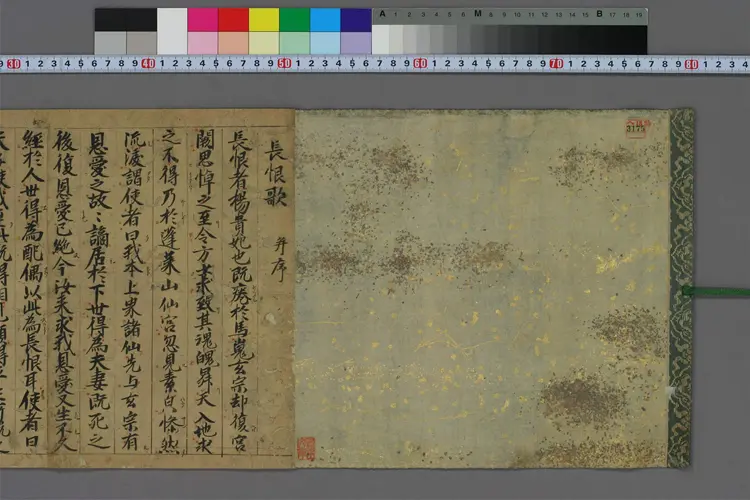 A 1 2 3 4 5 6 M 8 9 10 11 12 13 14 15 B 17 18 19
30 1 2 3 4 5 6 7 8 9 40 1 2 3 4 5 6 7 8 9 50 1 2 3 4 5 6 7 8 9 60 1 2 3 4 5 6 7 8 9 70 1 2 3 4 5 6 7 8 9 80 1 2 3 4
3175
長恨歌 并序
長恨者楊貴妃也既瘞於馬嵬玄宗却復宮
闕思悼之至令方士求致其魂魄昇天入地求
之不得乃於蓬萊山仙宮忽見素皃惨然
流淚謂使者曰我本上界諸仙先与玄宗有
恩愛之故〻謫居於下世得為夫妻既死之
後復恩愛已絶今汝来求我恩愛又生不久
經於人世得為配偶以此為長恨耳使者曰